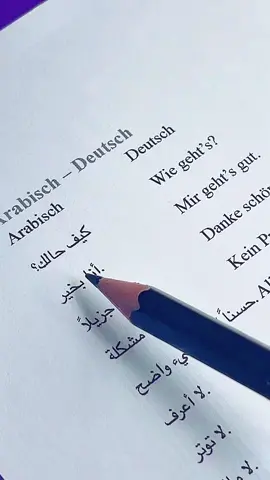 Arabisch – Deutsch
Arabisch Deutsch
كيف حالك؟ Wie geht's?
أنا بخير. Mir geht's gut.
جزيلاً Danke schön
مشكلة Kein
واضح حسناً.
لا أعرف.
لا توتر.